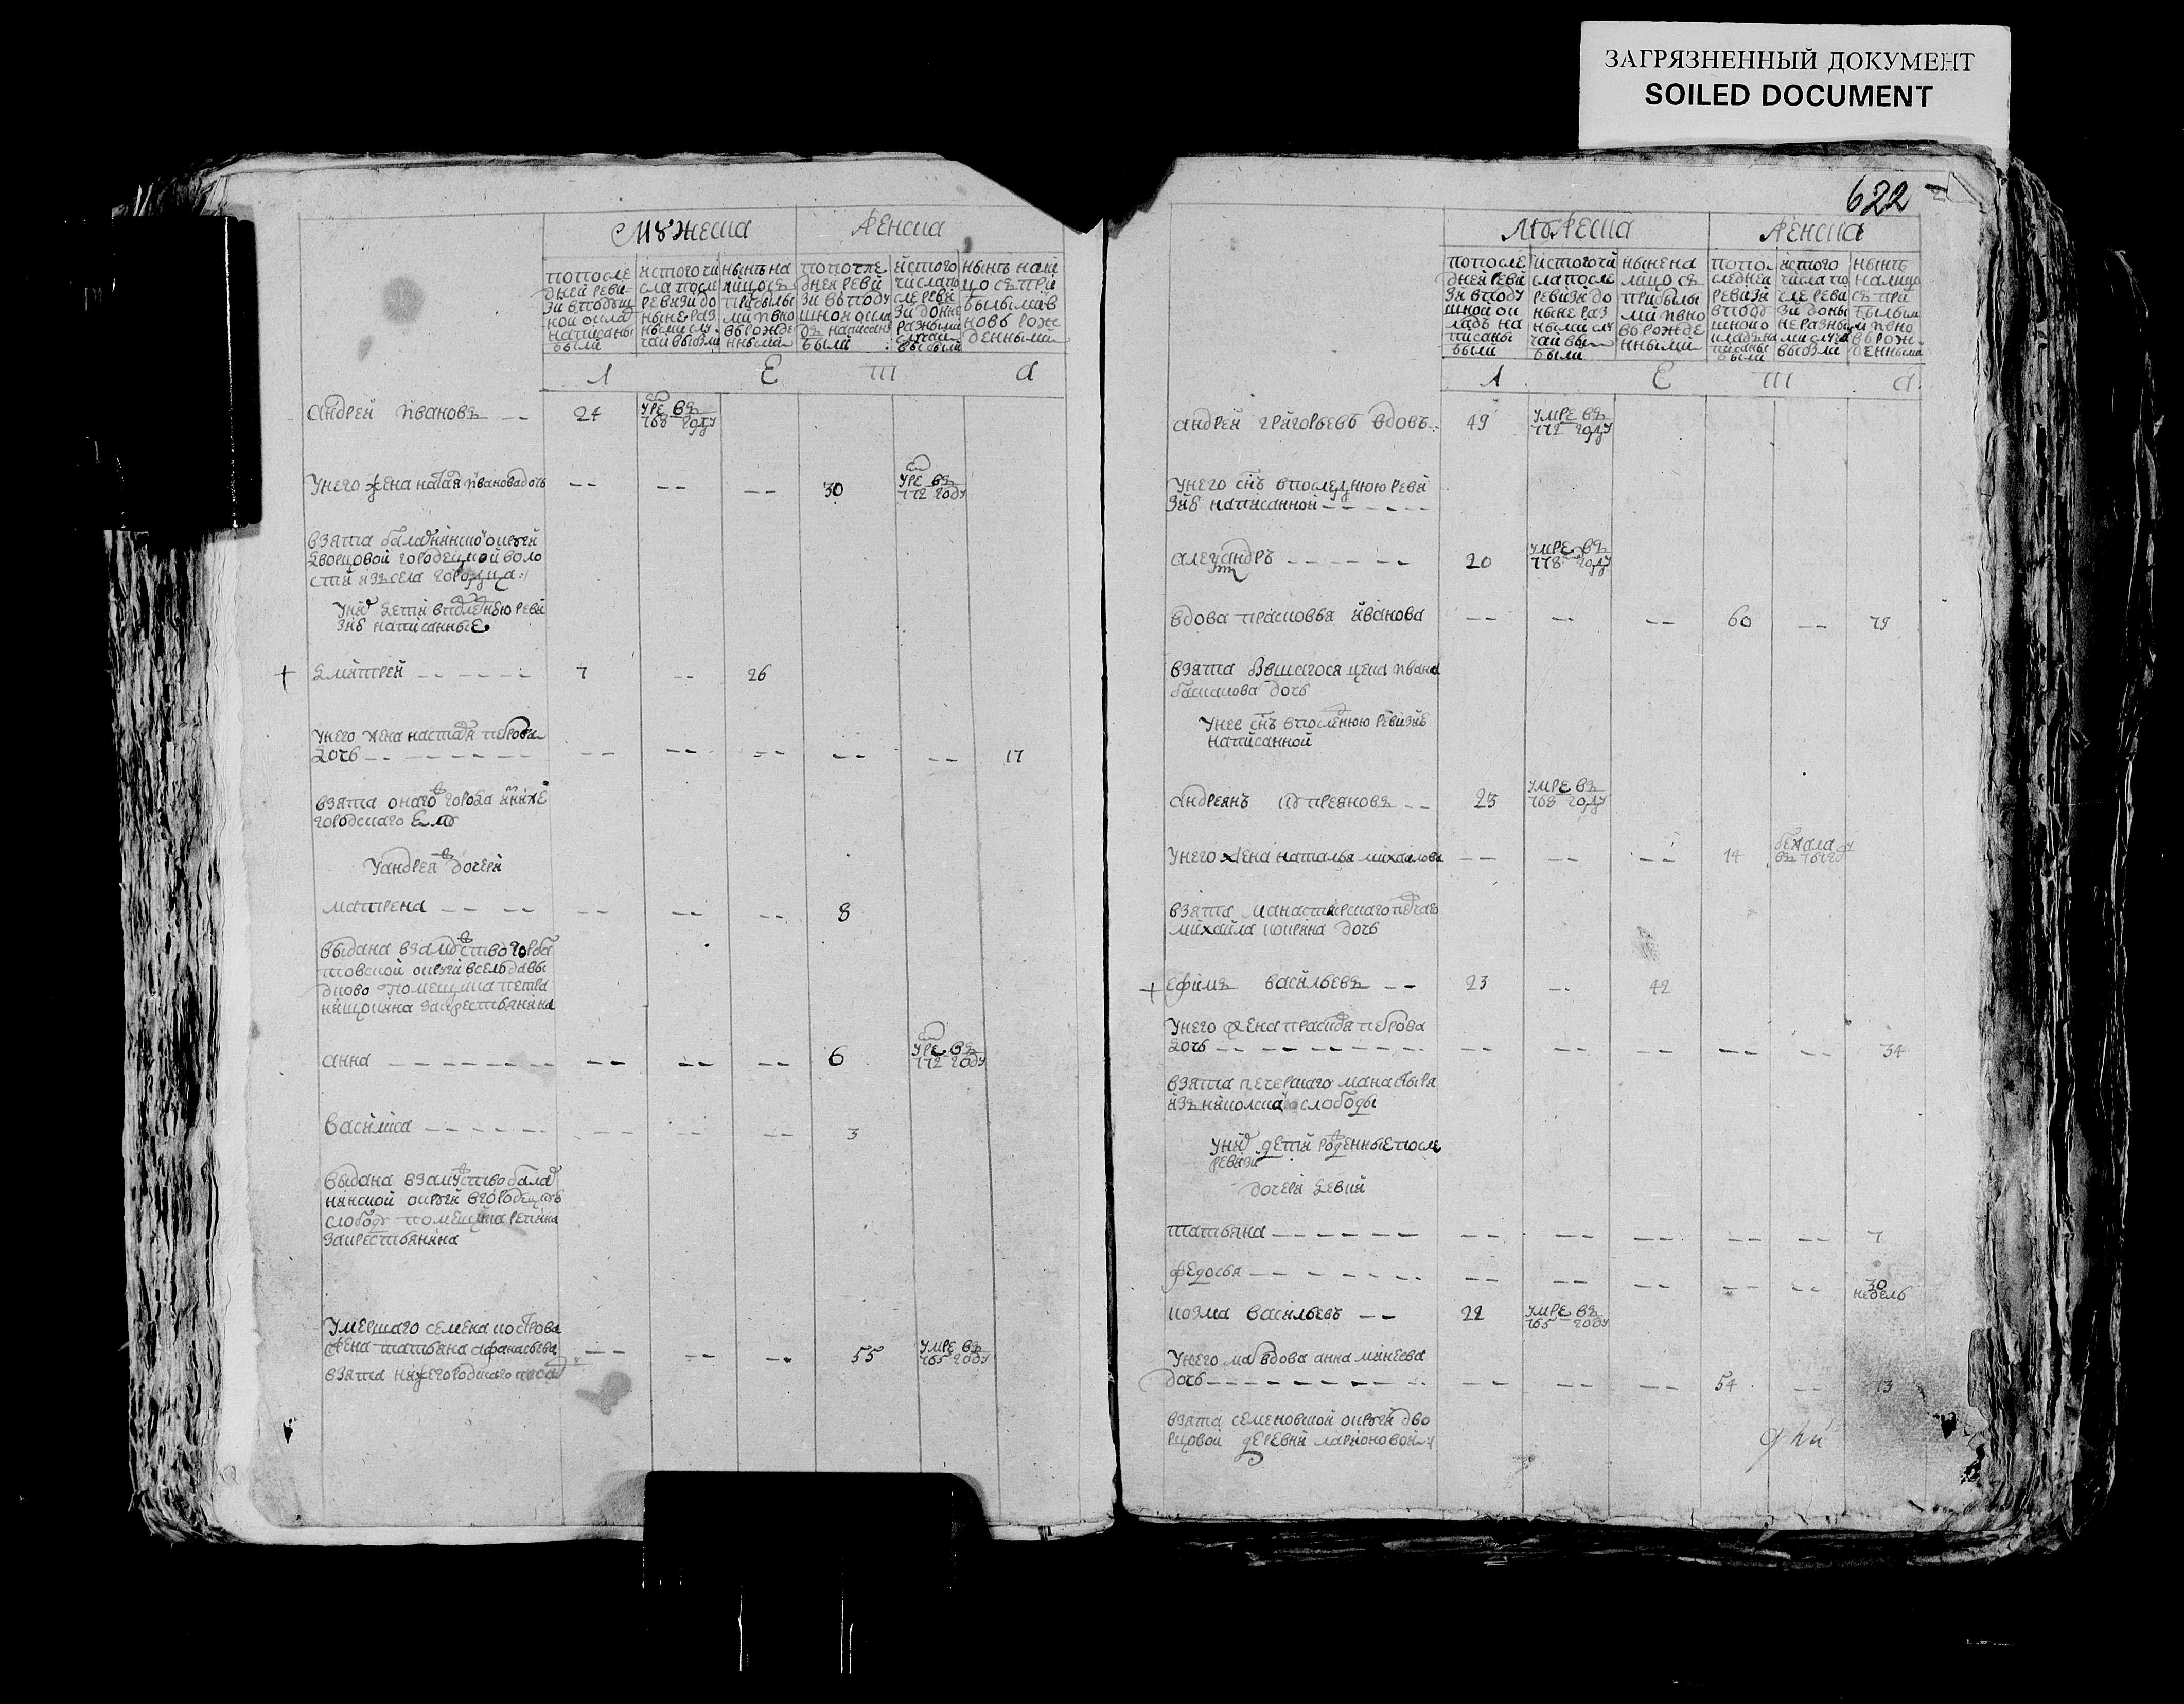 ЗАГРЯЗНЕННЫЙ ДОКУМЕНТ
SOILED DOCUMENT
622
Мужеска Женска
попосле
дней реви
зи вподуш
ной окла
написаны
были
истого чи
сла после
ревизи до
ныне раз
ными слу
чаи выбыли
ныне на
лицо съ
прибылы
ми вно
вь рожде
нными
попосле
дней реви
зи вподу
шной окла
дъ написаны
были
истого
числа по
сле реви
зи доне
разными
случаи
выбыли
ныне нали
цо съ при
былыми в
новь рож
денными
Л Е Т А
андрей иванов 24 умре въ
768 году
унего жена наталя иванова дочь 30 умре въ
772 году
взята балахнинской округи
дворцовой городецкой воло
сти изъ села городца
уних дети впоследнюю реви
зию написанные
дмитрей 7 26
унего жена настася петрова
дочь 17
взята онаго города нижне
городскаго
уандрея дочери
матрена 8
выдана взамужство горба
товской округи всело давы
дково помещика петра
за крестьянина
анна 6 умре въ
772 году
василиса 3
выдана взамужство балах
нинской округи вгородецкую
слободу помещика репнина
закрестьянина
умершаго семена кострова
жена татьяна афанасьева 55 умре въ
765 году
взята нижегородскаго
Мужеска Женска
попосле
дней реви
зи вподу
шной ок
ладъ на
писаны
были
истого чи
сла после
ревизи до
ныне раз
ными слу
чаи вы
были
ныне на
лицо съ
прибылы
ми вно
вь рожде
нными
попо
следней
ревизи
вподу
шной о
кладъ на
писаны
были
истого
числа по
сле реви
зи доны
не разны
ми случа
выбыли
ныне
налицо
съ при
былым
и вно
вь рож
денными
Л Е Т А
андрей григорьевъ вдовъ 49 умре въ
772 году
унего снъ впоследнюю реви
зию написанной
александръ 20 умре въ
778 году
вдова прасковья иванова 60 79
взята дочь
унее снъ впоследнюю ревизию
написанной
андреянъ куприяновъ 23 умре въ
768 году
унего жена наталья михайлова 14 бежала
взята манастырскаго
михайла дочь
ефимъ васильевъ 23 42
унего жена прасковья петрова
дочь 34
взята печерскаго манастыря
изъ никольской слободы
уних дети рожденные после
ревизи
дочери девки
татьяна 7
федосья 30
недель
козма васильевъ 22 умре въ
765 году
унего мать вдова анна минеева
дочь 54 73
взята семеновской округи дво
рцовой деревни ларионовой